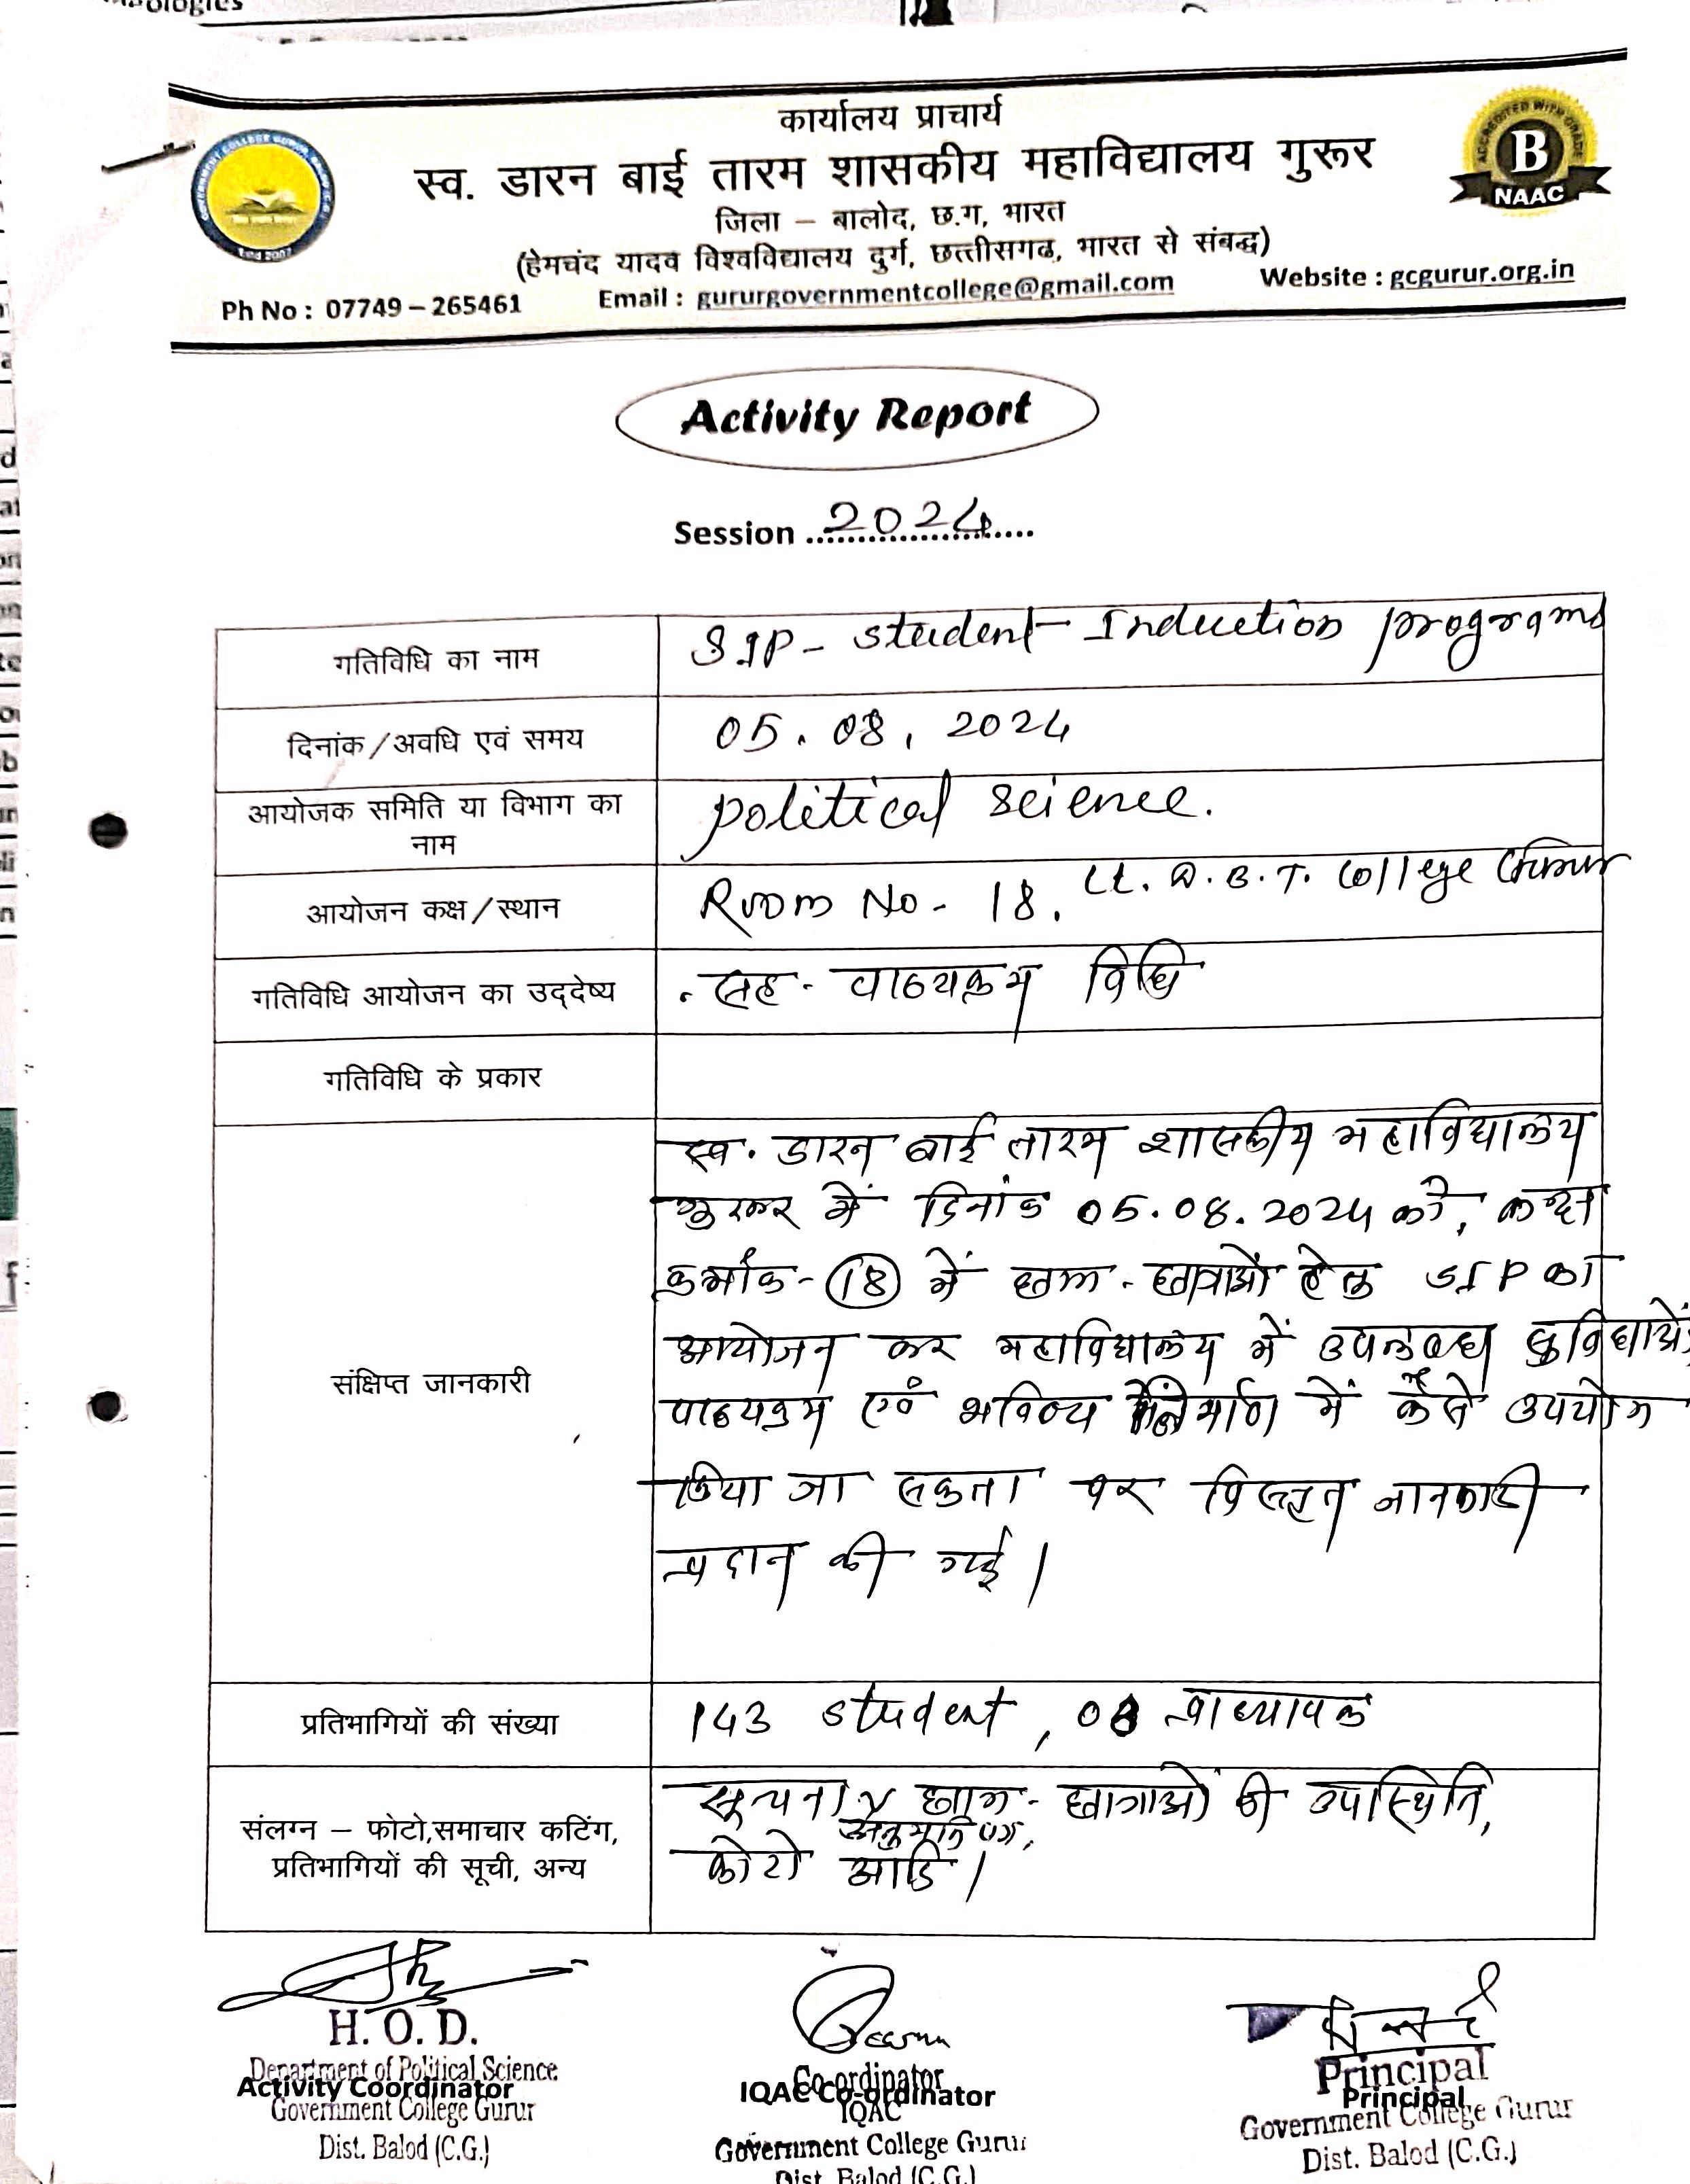 कार्यालय प्राचार्य
स्व. डारन बाई तारम शासकीय महाविद्यालय गुरूर
जिला – बालोद, छ.ग, भारत
(हेमचंद यादव विश्वविद्यालय दुर्ग, छत्तीसगढ, भारत से संबद्ध)
Ph No : 07749 – 265461 Email : gururgovernmentcollege@gmail.com Website : gcgurur.org.in
ACCREDITED WITH GRADE
B
NAAC
Activity Report
Session 2024
गतिविधि का नाम SIP - student Induction programs
दिनांक/अवधि एवं समय 05. 08. 2024
आयोजक समिति या विभाग का
नाम
political science.
आयोजन कक्ष/स्थान Room No - 18. Lt. D. B. T. College Gurur
गतिविधि आयोजन का उद्देष्य सह - पाठ्यक्रम विधि
गतिविधि के प्रकार
संक्षिप्त जानकारी
स्व. डारन बाई तारम शासकीय महाविद्यालय
गुरूर में दिनांक 05.08.2024 को, कक्ष
क्रमांक - 18 में छात्र - छात्राओं हेतु SIP का
आयोजन कर महाविद्यालय में उपलब्ध सुविधाओं,
पाठ्यक्रम एवं भविष्य निर्माण में कैसे उपयोग
किया जा सकता पर विस्तृत जानकारी
प्रदान की गई।
प्रतिभागियों की संख्या 143 student, 08 प्राध्यापक
संलग्न – फोटो,समाचार कटिंग,
प्रतिभागियों की सूची, अन्य
सूचना, छात्र - छात्राओं की उपस्थिति,
अनुमति पत्र,
फोटो आदि।
H. O. D.
Department of Political Science
Activity Coordinator
Government College Gurur
Dist. Balod (C.G.)
Co-ordinator
IQAC Co-ordinator
IQAC
Government College Gurur
Dist. Balod (C.G.)
Principal
Principal
Government College Gurur
Dist. Balod (C.G.)